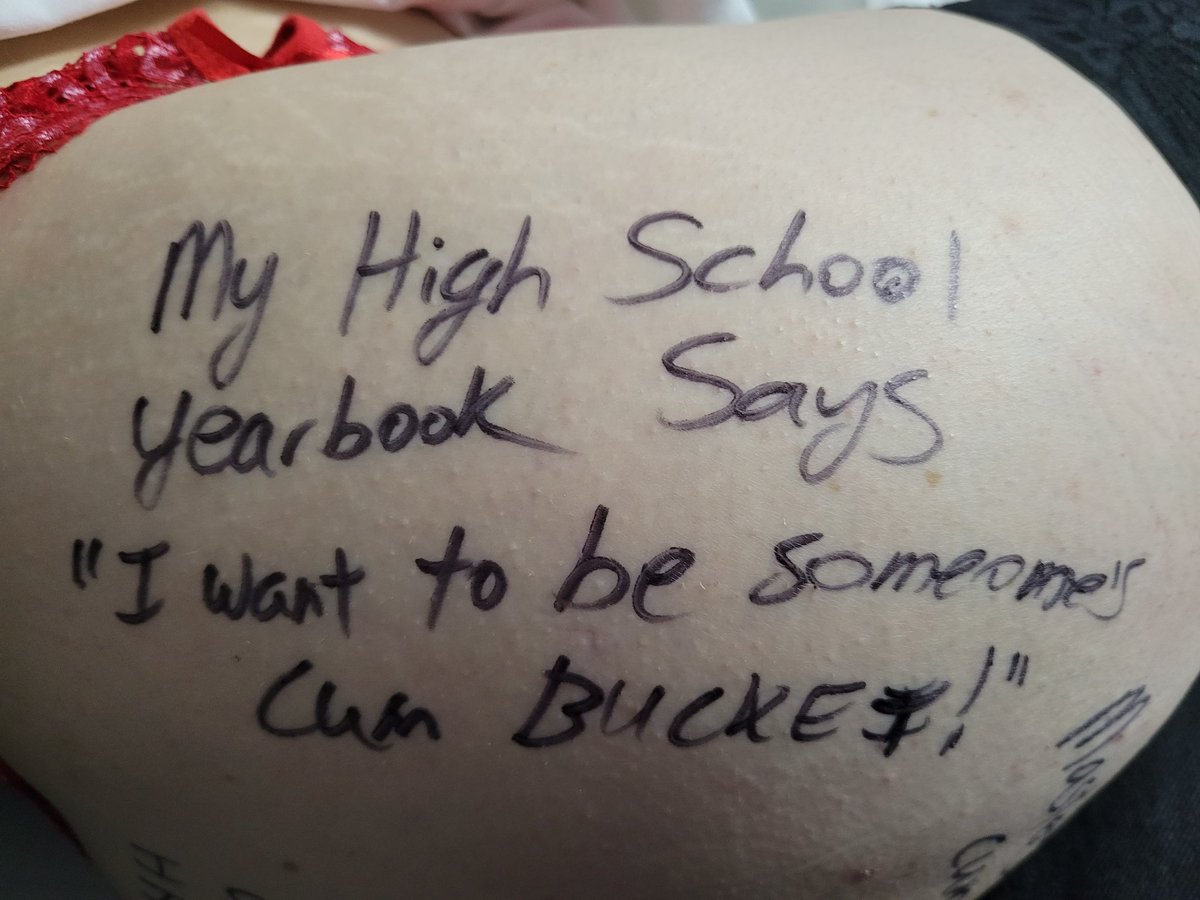 My High School
yearbook Says
"I want to be someome's
Cum BUCKET!"